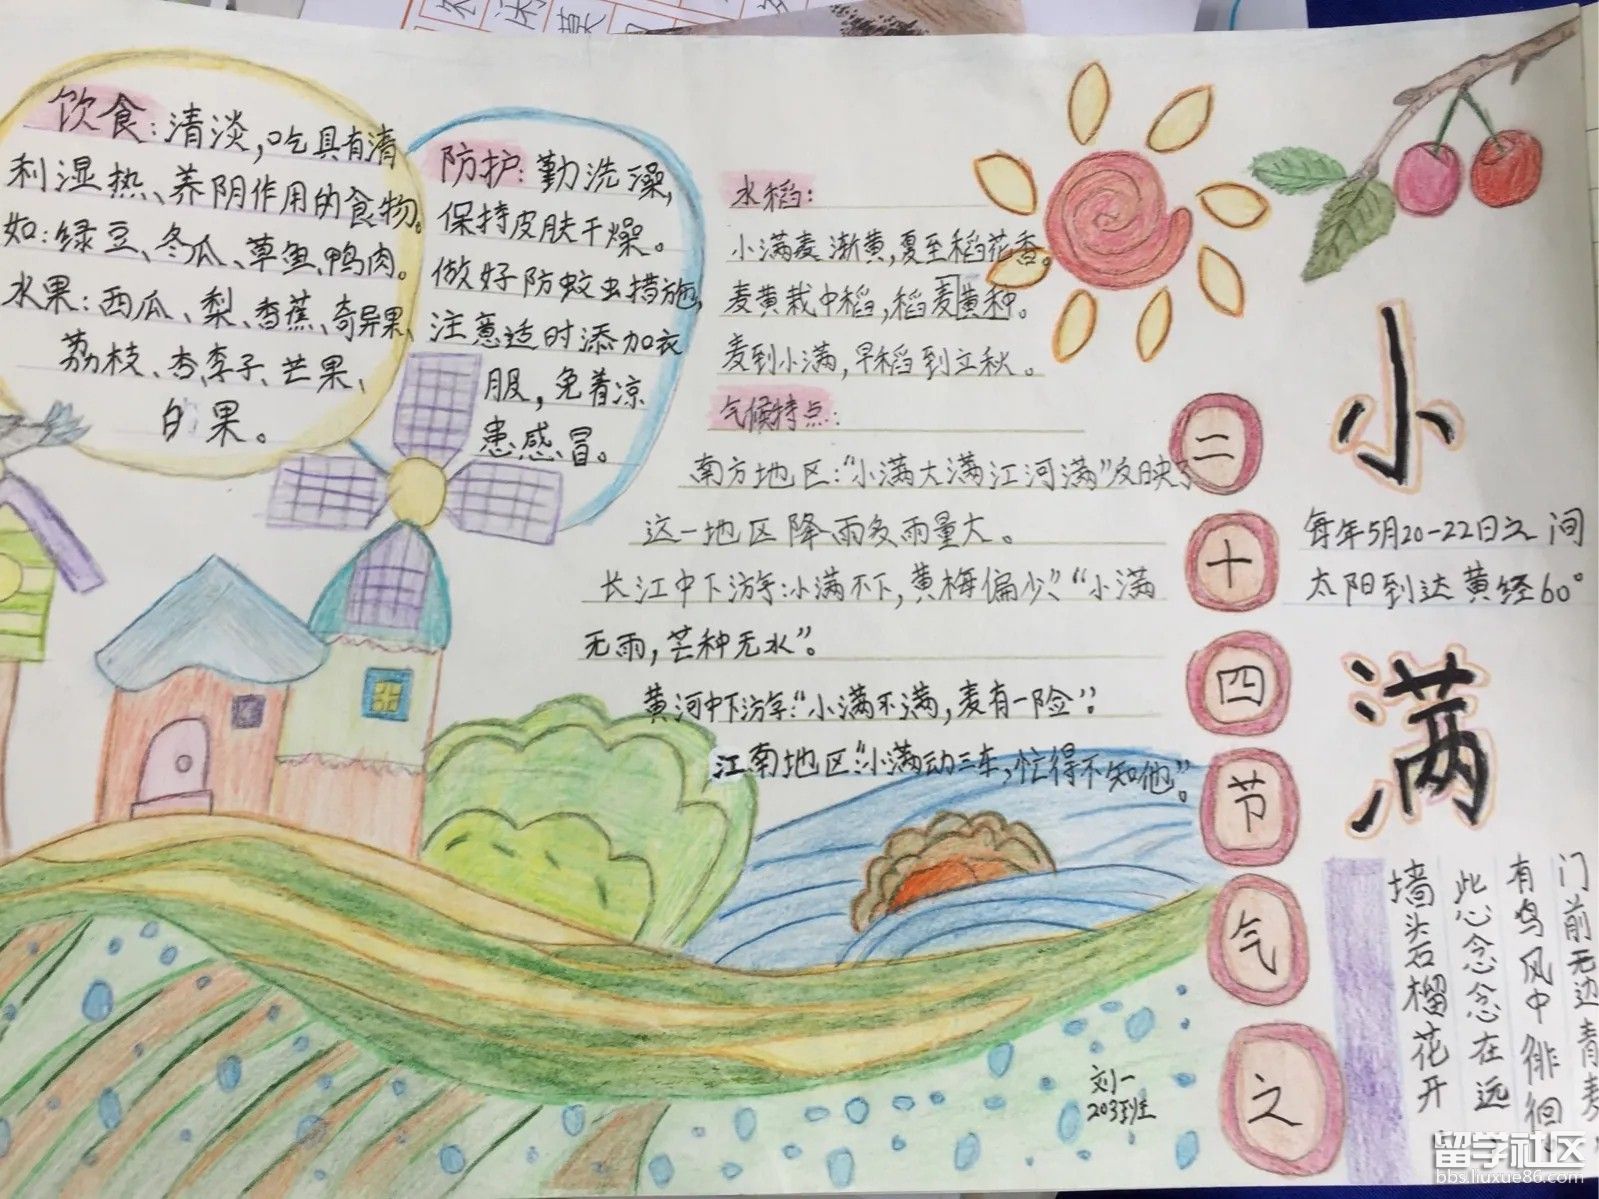 饮食：清淡，吃具有清
利湿热、养阴作用的食物。
如：绿豆、冬瓜、草鱼、鸭肉。
水果：西瓜、梨、香蕉、奇异果、
荔枝、杏、李子、芒果、
的果。
防护：勤洗澡，
保持皮肤干燥。
做好防蚊虫措施，
注意适时添加衣
服，免着凉
患感冒。
水稻：
小满麦渐黄，夏至稻花香。
麦黄栽中稻，稻麦黄种。
麦到小满，早稻到立秋。
气候特点：
南方地区：“小满大满江河满”反映了
这一地区降雨多雨量大。
长江中下游：小满不下，黄梅偏少、“小满
无雨，芒种无水”。
黄河中下游：“小满不满，麦有一险”。
江南地区“小满动三车，忙得不知他”。
二十四节气之
小满
每年5月20-22日之间
太阳到达黄经60°
门前无边青麦
有鸟风中徘徊
此心念念在远
墙头石榴花开
刘一
203班
留学社区
bbs.liuxue86.com